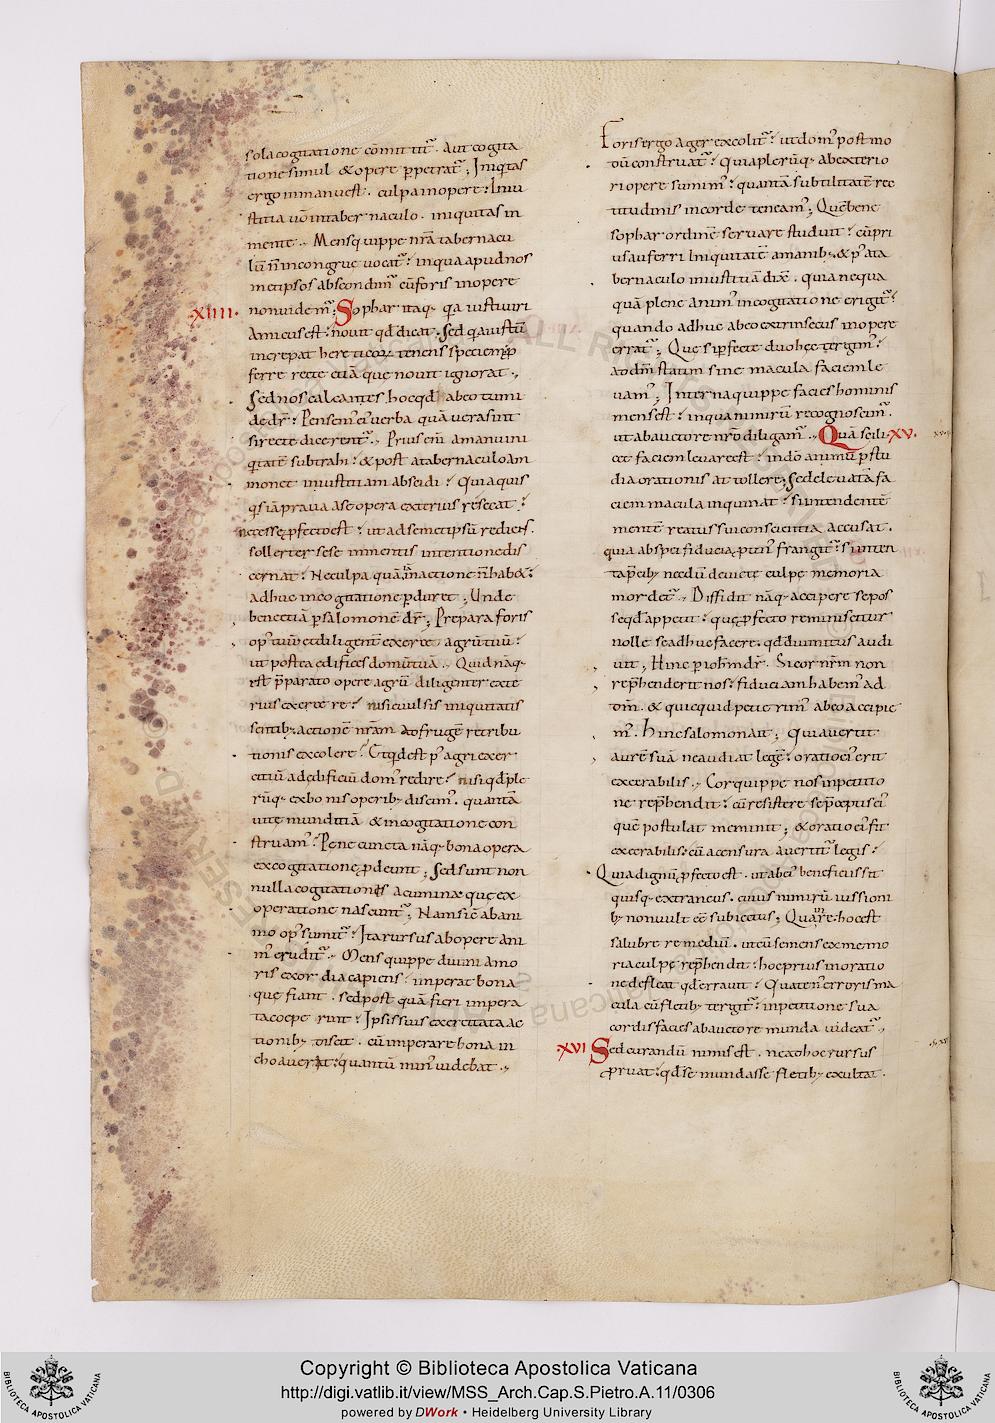 sola cogitatione cōmittit̄. Aut cogita
tione simul & opere ꝑpetrat̄; Iniq̇tas
ergo in manu est. culpa in opere; Iniu
stitia uō in tabernaculo. iniquitas in
mente. Mens quippe nr̄a tabernacu
lū ñ incongrue uocat̄; in qua apud nos
metipsos abscondim̄ cū foris in opere
non uidem̄; 
XIIII. Sophar itaq; q̇a iusti uiri
Amicus est; nouit qđ dicat. Sed q̇a iustū
increpat hereticoꝝ tenens speciem ꝓ
ferre recte etiā que nouit ignorat.
Sed nos calcantes hoc qđ abeo tumi
de dr̄; Pensem̄ ei uerba quā uera sint
si recte dicerent̄. Prius eni͞ a manu ini
q̇tatē subtrahi; & post a tabernaculo am
monet iniustitiam abscidi; Quia quis
q̇s iā praua a se opera exterius resecat;
necesse ꝓfecto est; ut ad semetipsū rediens.
sollerter sese in mentis intentione dis
cernat; Ne culpa quā iā in actione ñ hab&;
adhuc in cogitatione ꝑduret; Unde
bene etiā ꝑ salomonē dr̄; Prepara foris
op̄ tuū et diligent̄ exerce agrū tuū;
ut postea edifices domū tuā. Quid nāq;
est p̄parato opere agrū diligenter exte
rius exercere; nisi euulsis iniquitatis
sentib; actionē nr̄am ad frugē retribu
tionis excolere; Et qđ est p̄ agri exer
citiū ad ędificiū dom̄ redire; nisi qđ ple
rūq; ex bonis operib; discim̄. quantā
uitę munditiā & in cogitatione con
struam̄; Pene cuncta nāq; bona opera
ex cogitatione ꝓdeunt; Sed sunt non
nulla cogitationis acumina que ex
operatione nascunt̄; Nam sic ab ani
mo op̄ sumit̄; Ita rursus ab opere ani
m̄ erudit̄. Mens quippe diuini amo
ris exordia capiens; imperat bona
que fiant. sed post quā fieri impera
ta coeperunt; Ipsis suis exercitata ac
tionib; discit. cū imperare bona in
choauerat; quantū min̄ uidebat.
Foris ergo ager excolit̄; ut dom̄ post mo
dū construat̄; quia plerūq; ab exterio
ri opere sumim̄; quantā subtilitatē rec
titudinis in corde teneam̄; Quē bene
sophar ordinē seruare studuit; cū pri
us auferri iniquitatē a manib; & p̄ a ta
bernaculo iniustitiā dix̄. quia nequa
quā plene anim̄ in cogitatione erigit̄;
quando adhuc ab eo extrinsecus in opere
errat̄; Que si ꝑfecte duo hęc tergim̄;
ad dm̄ statim sine macula faciem le
uam̄; Interna quippe facies hominis
mens est; in qua nimirū recognoscim̄.
ut ab auctore nr̄o diligam̄. Quā scili XV.
cet faciem leuare est; in dō animū ꝑ stu
dia orationis attollere; Sed eleuatā fa
ciem macula inquinat; si intendentē
mentē reatus sui conscientia accusat.
quia ab spei fiducia ꝓtin̄ frangit̄; si inten
ta p̄cib; necdū deuictę culpę memoria
mordet̄. Diffidit nāq; accipere se pos
se qđ appetit; que ꝓfecto reminiscitur
nolle se adhuc facere. qđ diuinitus audi
uit; Hinc ꝑ ioħm dr̄. Si cor nr̄m non
rep̄henderit nos; fiduciam habem̄ ad
dm̄. & quicquid petierim̄ ab eo accipie
m̄. Hinc salomon ait; Qui auertit
aurē suā ne audiat legē; oratio ei erit
execrabilis. Cor quippe nos in petitio
ne rep̄hendit; cū resistere se p̄ceptis ei
quē postulat meminit; & oratio ei fit
execrabilis; cū a censura auertit̄ legis;
Quia dignū ꝓfecto est. ut ab ei beneficiis sit
quisq; extraneus. cuius nimirū iussioni
b; non uult eē subiectus; Qua in re hoc est
salubre remediū. ut cū se mens ex memo
ria culpę rep̄hendit; hoc prius in oratio
ne defleat qđ errauit; Quaten̄ erroris ma
cula cū fletib; tergit̄; in petitione sua
cordis facies ab auctore munda uideat̄.
XVI Sed curandū nimis est. ne ad hoc rursus
ꝓruat; qđ se mundasse fletib; exultat.
Copyright © Biblioteca Apostolica Vaticana
http://digi.vatlib.it/view/MSS_Arch.Cap.S.Pietro.A.11/0306
powered by DWork • Heidelberg University Library